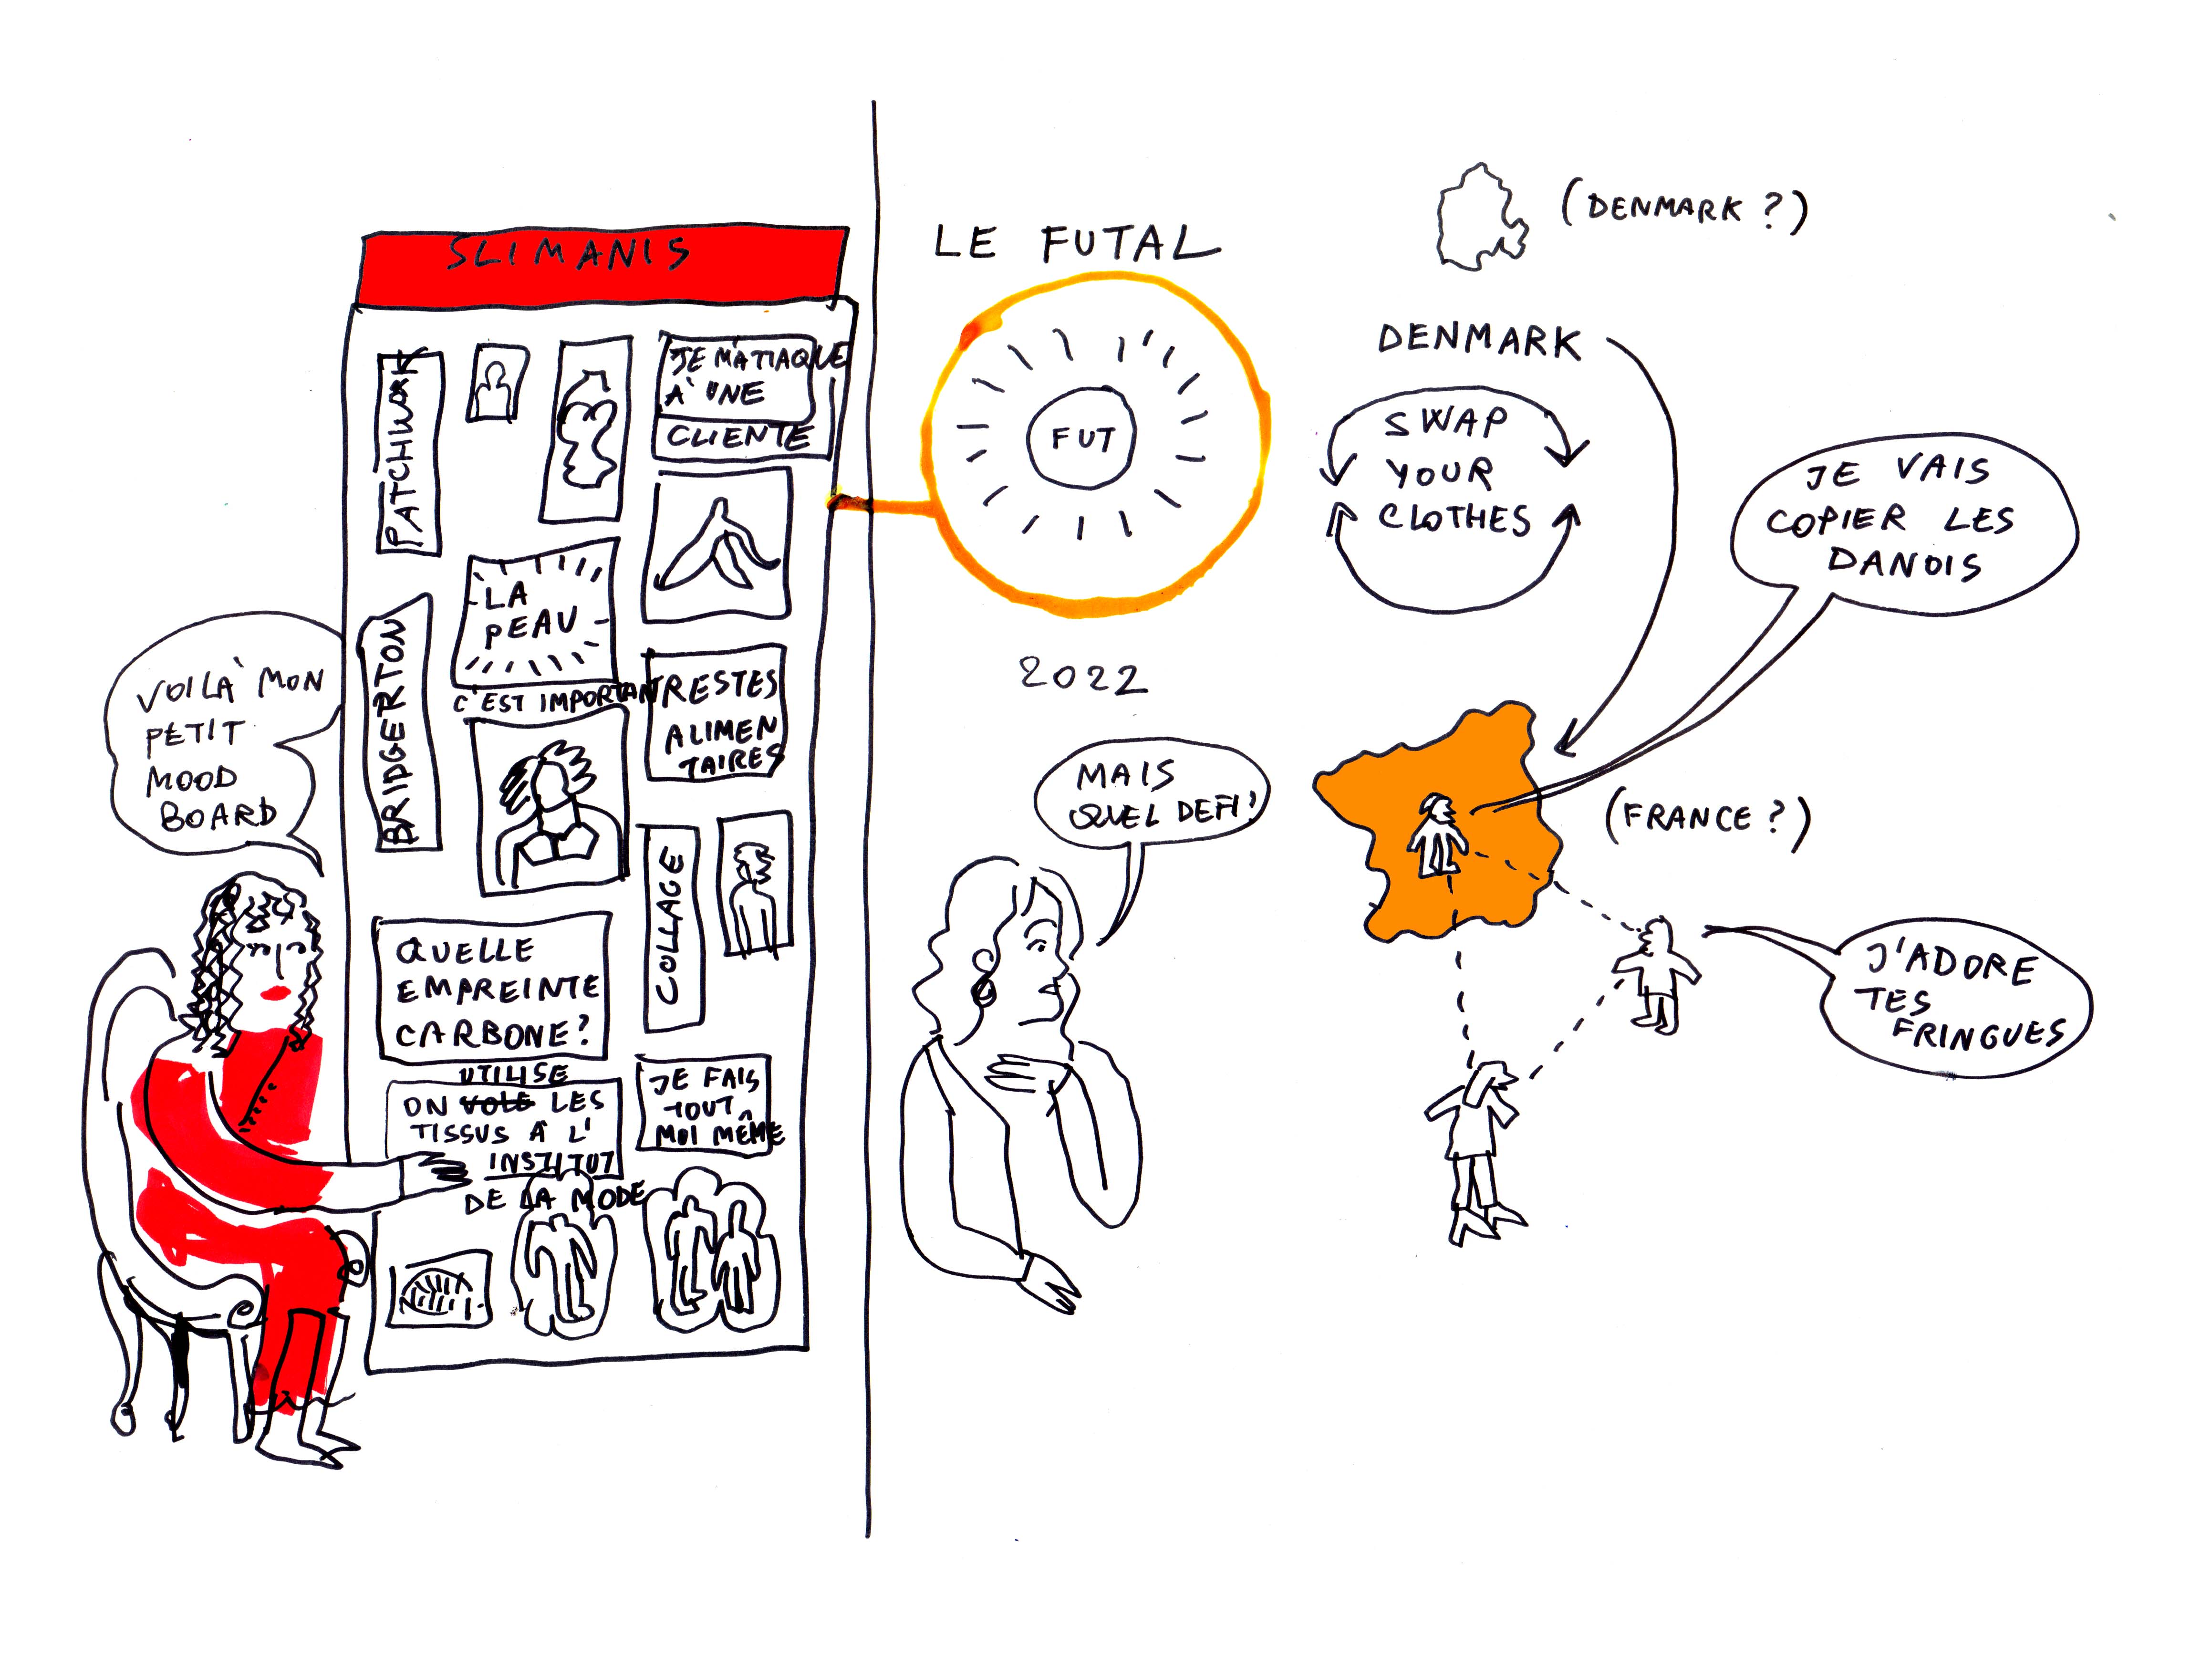 SLIMANIS
PATCHWORK
JE M'ATTAQUE
À UNE
CLIENTE
LA
PEAU
C'EST IMPORTANT
BRIDGERTON
RESTES
ALIMEN
TAIRES
VOILÀ MON
PETIT
MOOD
BOARD
COLLAGE
QUELLE
EMPREINTE
CARBONE?
UTILISE
ON VOLE LES
TISSUS À L'
INSTITUT
DE LA MODE
JE FAIS
TOUT
MOI MÊME
LE FUTAL
FUT
2022
MAIS
QUEL DEFI!
(DENMARK ?)
DENMARK
SWAP
YOUR
CLOTHES
JE VAIS
COPIER LES
DANOIS
(FRANCE ?)
J'ADORE
TES
FRINGUES